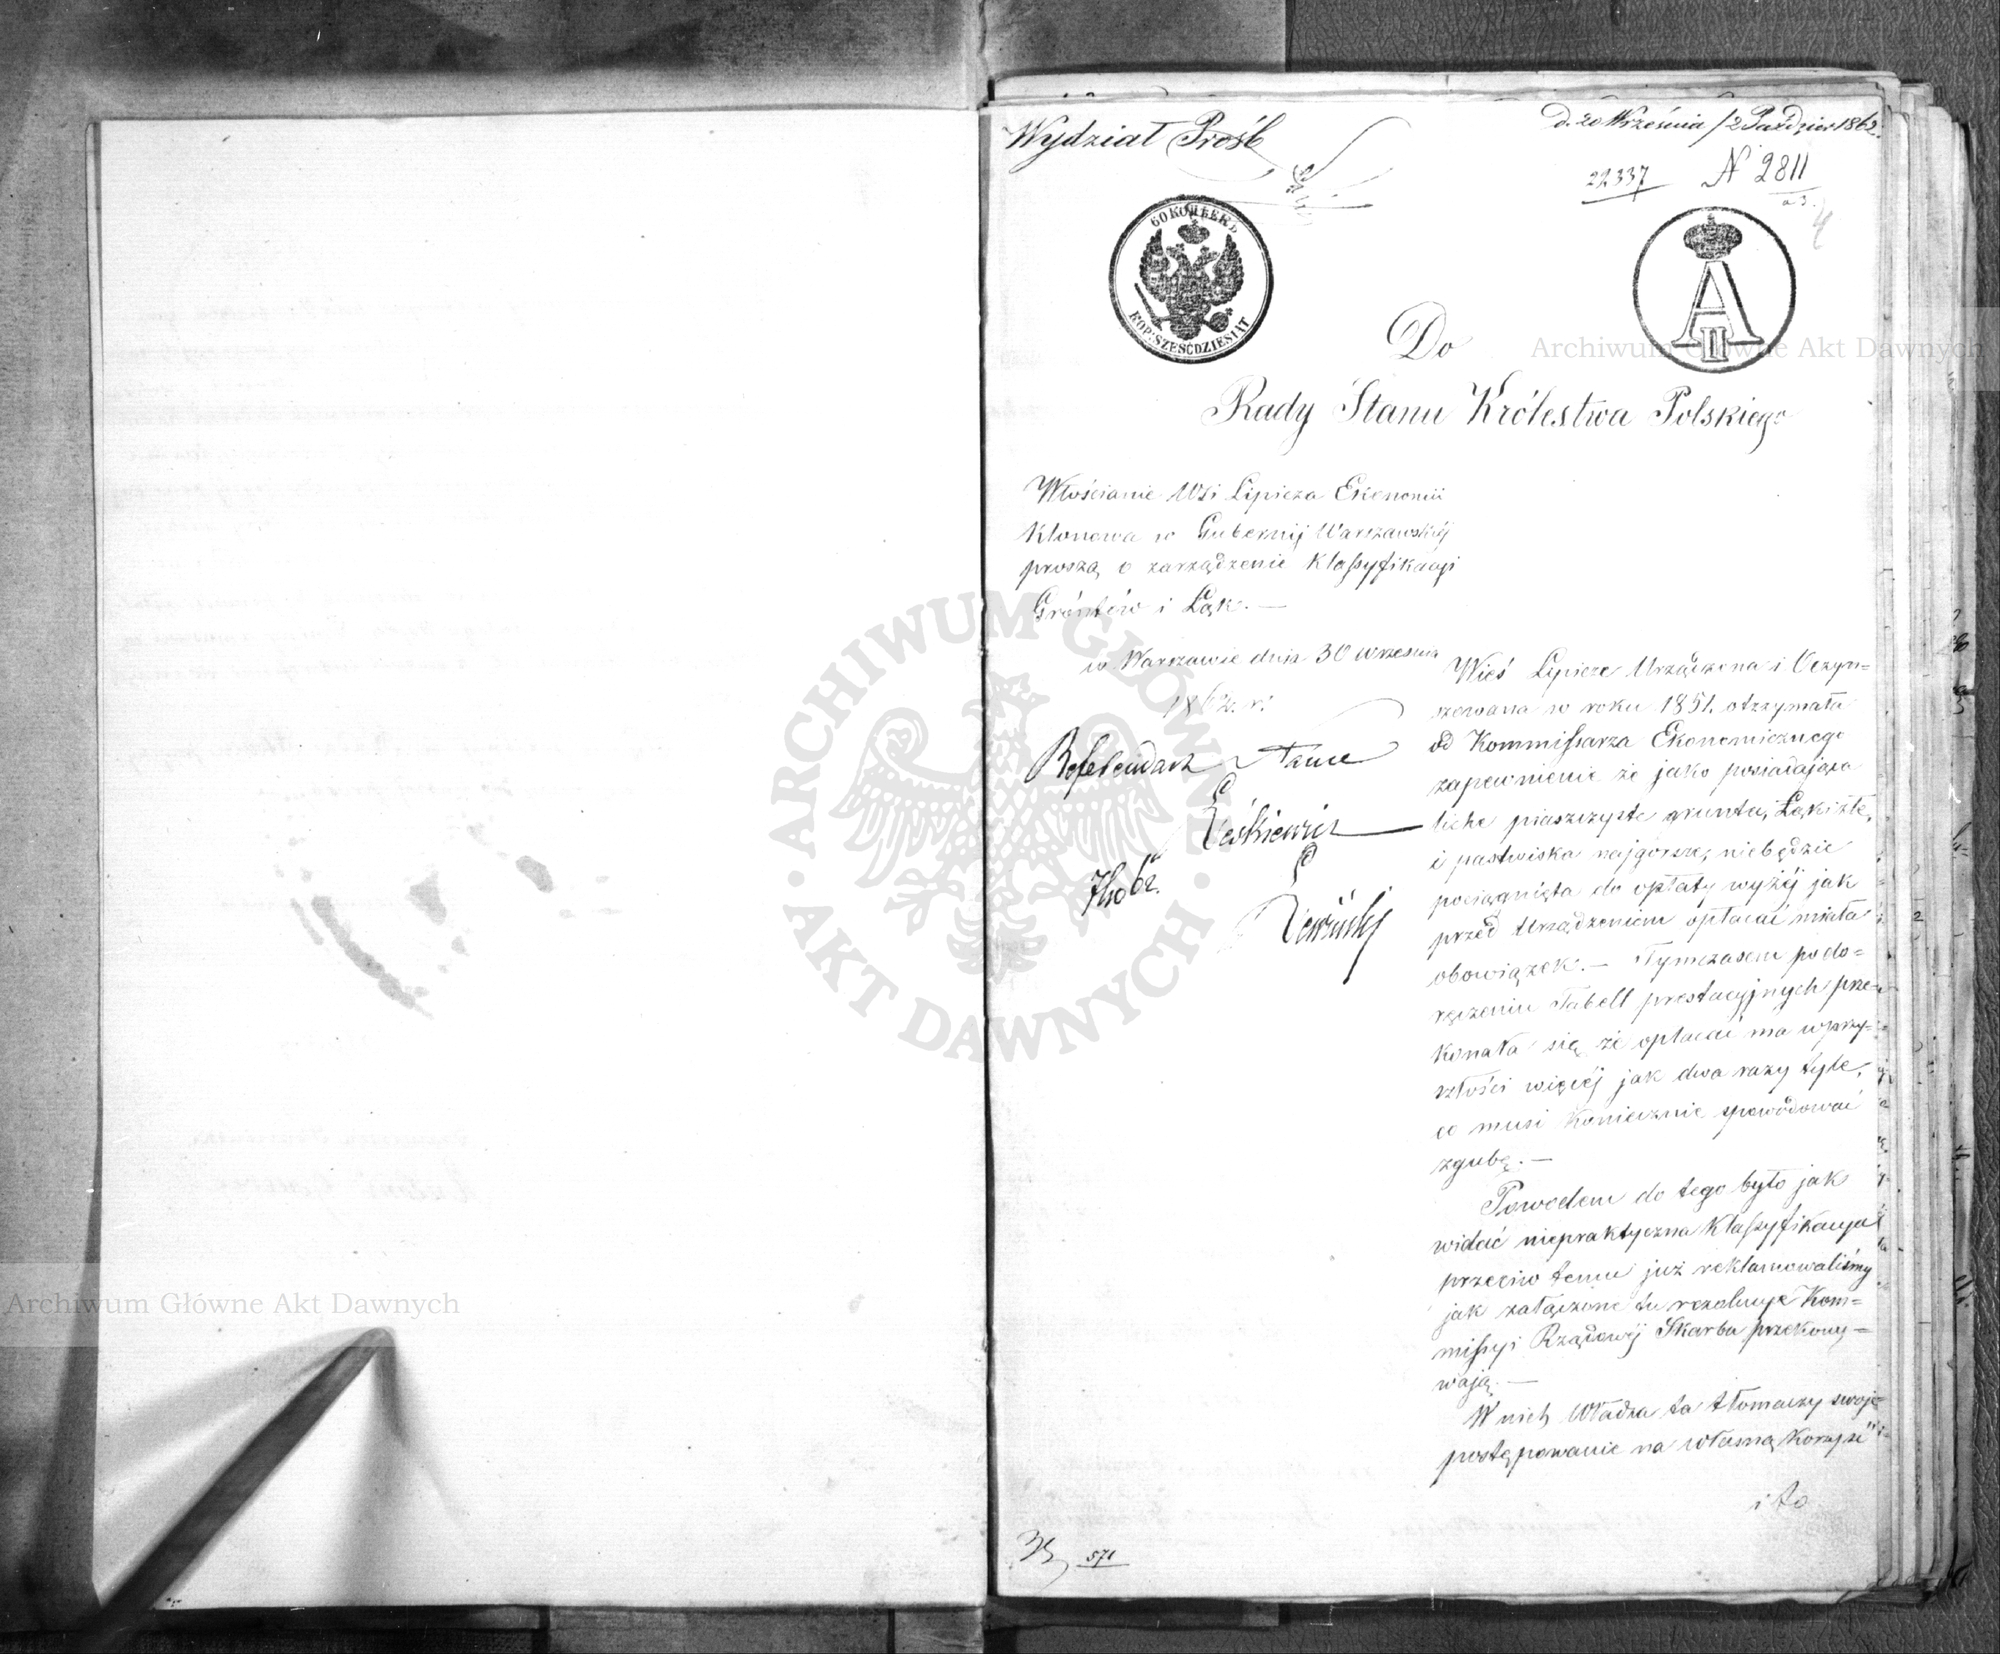 Wydział Próśb
d. 20 Września / 2 Paździer 1862.
22337
N 2811
4
60 КОПѢЕКЪ
KOP: SZEŚĆDZIESIĄT
A II
Do
Rady Stanu Królestwa Polskiego
Włościanie Wsi Lipicza Ekonomii
Klonowa w Gubernij Warszawskiéj
proszą o zarządzenie Klassyfikacyi
Gróntów i Łąk. —
w Warszawie dnia 30 września
1862. r.
Referendarz Stanu
Leśkiewicz
Wieś Lipicze Urządzona i Oczyn=
szowana w roku 1851. otrzymała
od Kommissarza Ekonomicznego
zapewnienie że jako posiadająca
liche piaszczyste grunta, Łąki złe,
i pastwiska najgorsze, niebędzie
pociągnięta do opłaty wyżéj jak
przed Urządzeniem opłacać miała
obowiązek. — Tymczasem po do=
ręczeniu Tabell prestacyjnych prze=
konała się że opłacać ma w przy=
szłości więcéj jak dwa razy tyle,
co musi koniecznie spowodować
zgubę. —
Powodem do tego było jak
widać niepraktyczna Klassyfikacya
przeciw temu już reklamowaliśmy
jak załączone tu rezolucye Kom=
missyi Rządowéj Skarbu przekony=
wają. —
W nich Władza ta tłomaczy swoje
postępowanie na własną korzyść
i to
571
Archiwum Główne Akt Dawnych
Archiwum Główne Akt Dawnych
ARCHIWUM GŁÓWNE AKT DAWNYCH